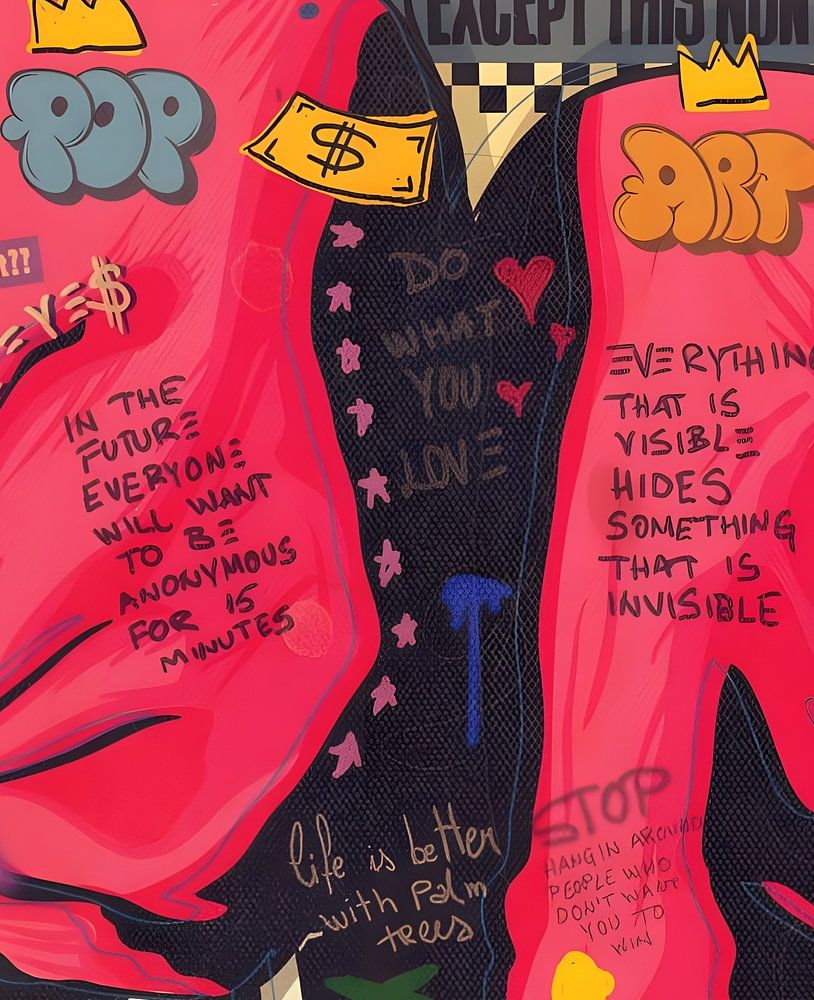 EXCEPT THIS NON
POP
$
ART
??
EYE$
DO
WHAT
YOU
LOVE
IN THE
FUTURE
EVERYONE
WILL WANT
TO BE
ANONYMOUS
FOR 15
MINUTES
EVERYTHING
THAT IS
VISIBLE
HIDES
SOMETHING
THAT IS
INVISIBLE
life is better
with Palm
trees
STOP
HANGIN AROUND
PEOPLE WHO
DON'T WANT
YOU TO
WIN